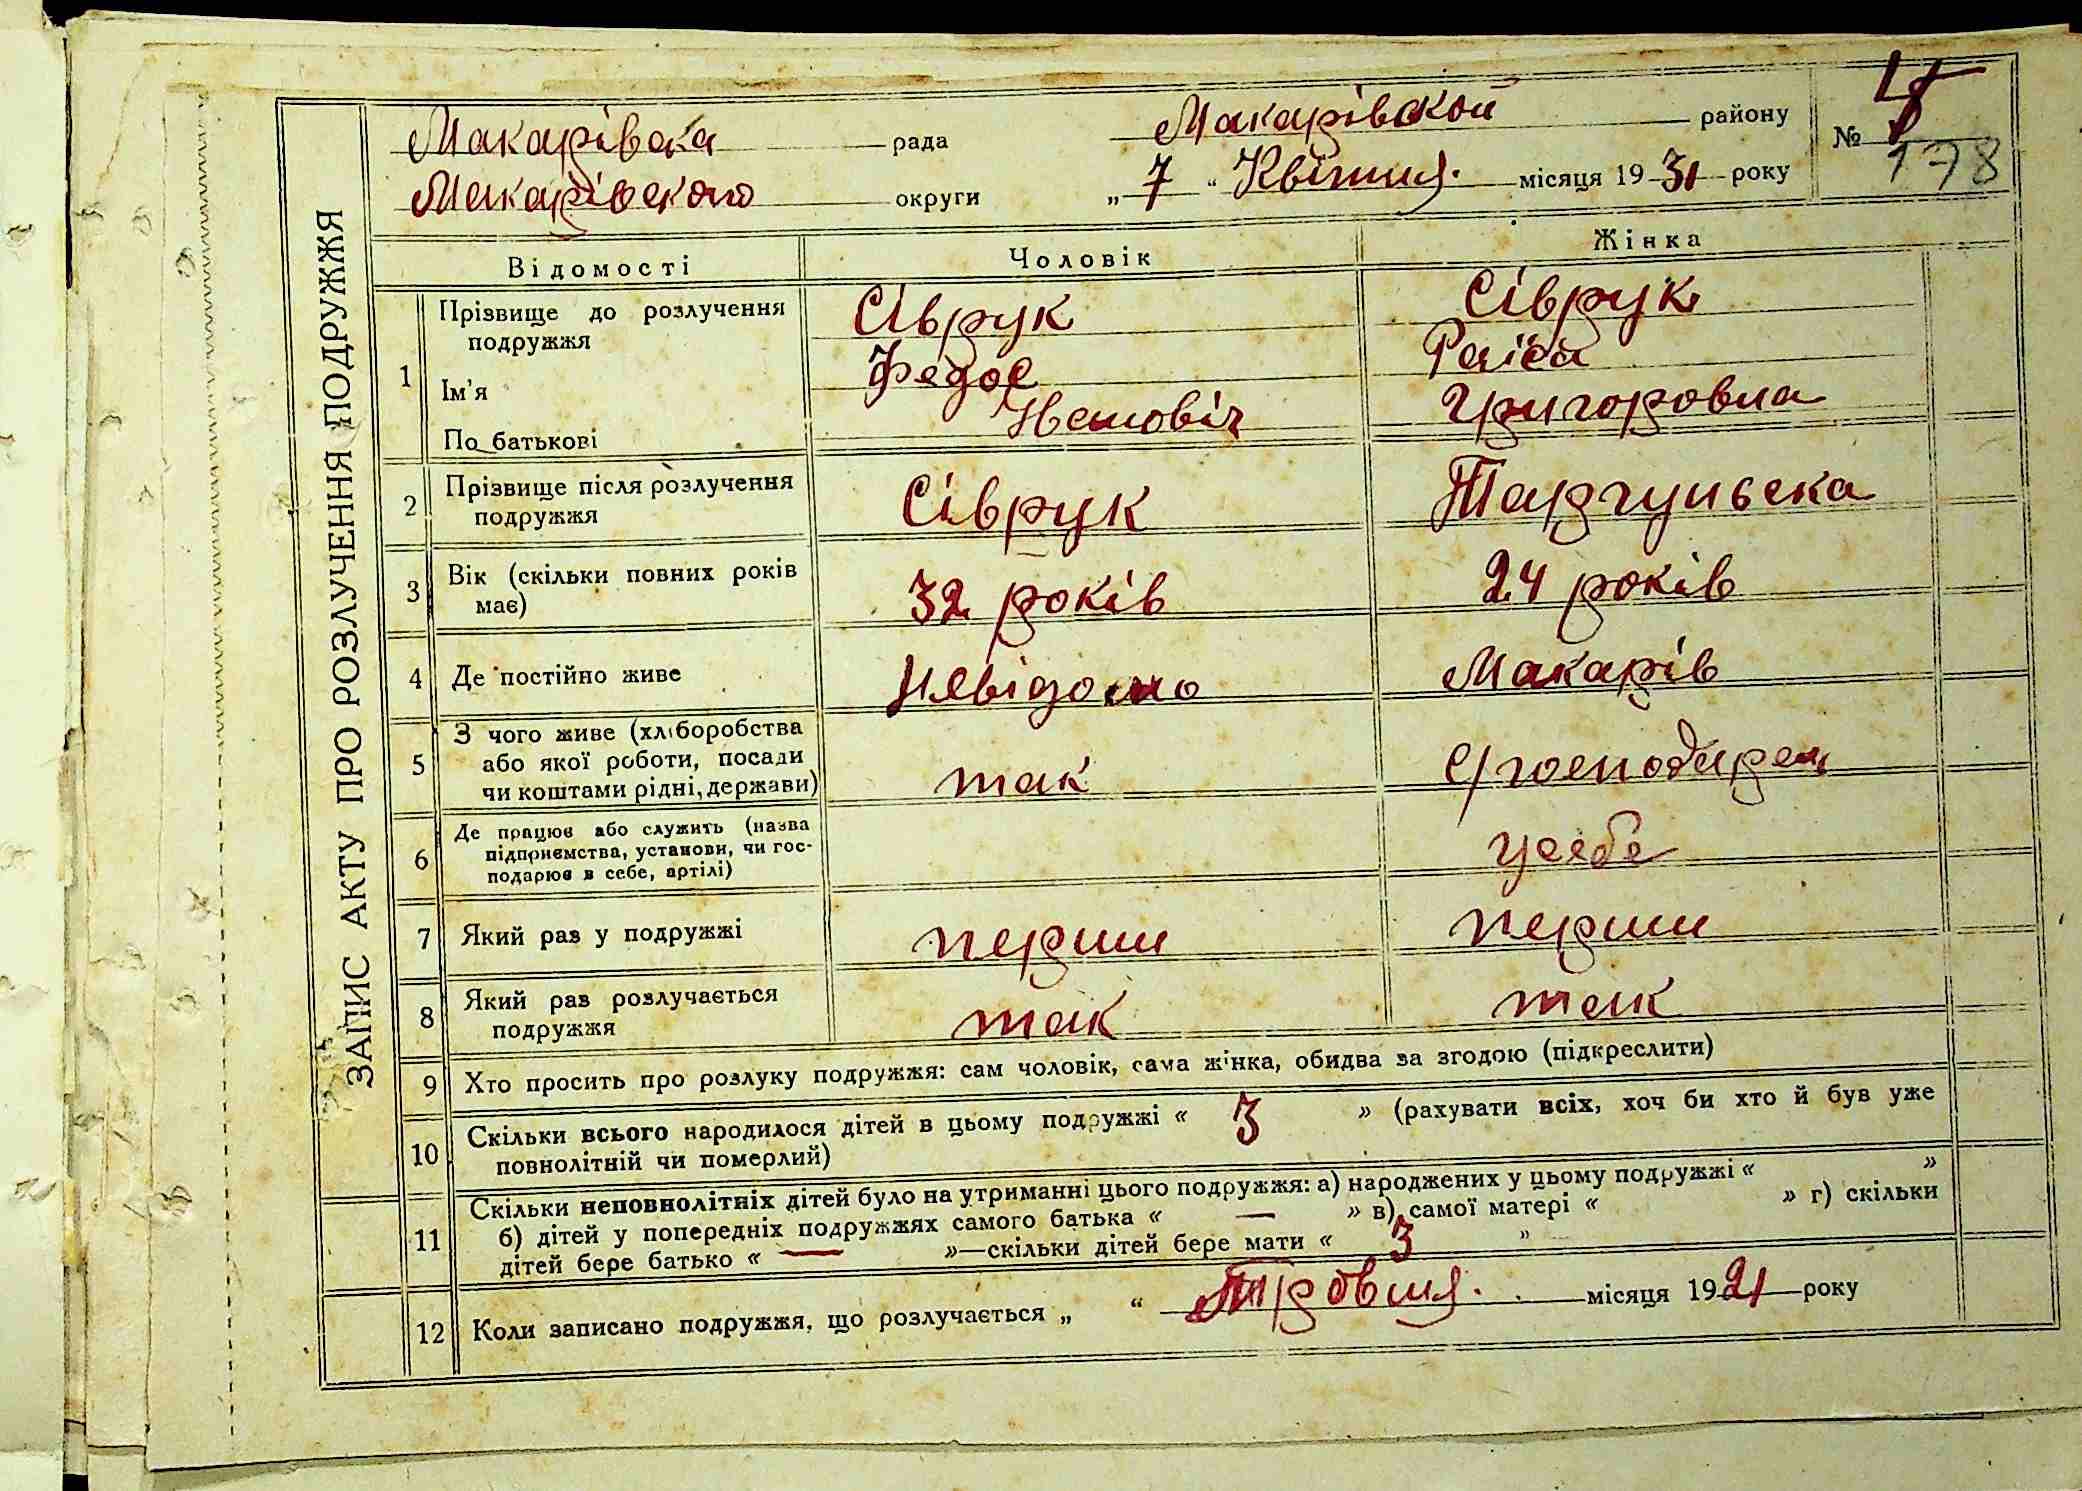 ЗАПИС АКТУ ПРО РОЗЛУЧЕННЯ ПОДРУЖЖЯ
Макарівска рада Макарівской району № 4
Макарівского округи „ 7 “ Квітня. місяця 1931 року 178
Відомості Чоловік Жінка
1 Прізвище до розлучення подружжя Сіврук Сіврук
Ім'я Федос Раіса
По батькові Івановіч Григоровна
2 Прізвище після розлучення подружжя Сіврук
3 Вік (скільки повних років має) 32 років 24 років
4 Де постійно живе Невідомо Макарів
5 З чого живе (хліборобства або якої роботи, посади чи коштами рідні, держави) так
6 Де працює або служить (назва підприємства, установи, чи господарює в себе, артілі) усебе
7 Який раз у подружжі перши перши
8 Який раз розлучається подружжя так так
9 Хто просить про розлуку подружжя: сам чоловік, сама жінка, обидва за згодою (підкреслити)
10 Скільки всього народилося дітей в цьому подружжі « 3 » (рахувати всіх, хоч би хто й був уже
повнолітній чи померлий)
11 Скільки неповнолітніх дітей було на утриманні цього подружжя: а) народжених у цьому подружжі « »
б) дітей у попередніх подружжях самого батька « — » в) самої матері « » г) скільки
дітей бере батько « — »—скільки дітей бере мати « 3 »
12 Коли записано подружжя, що розлучається „ “ місяця 1921 року